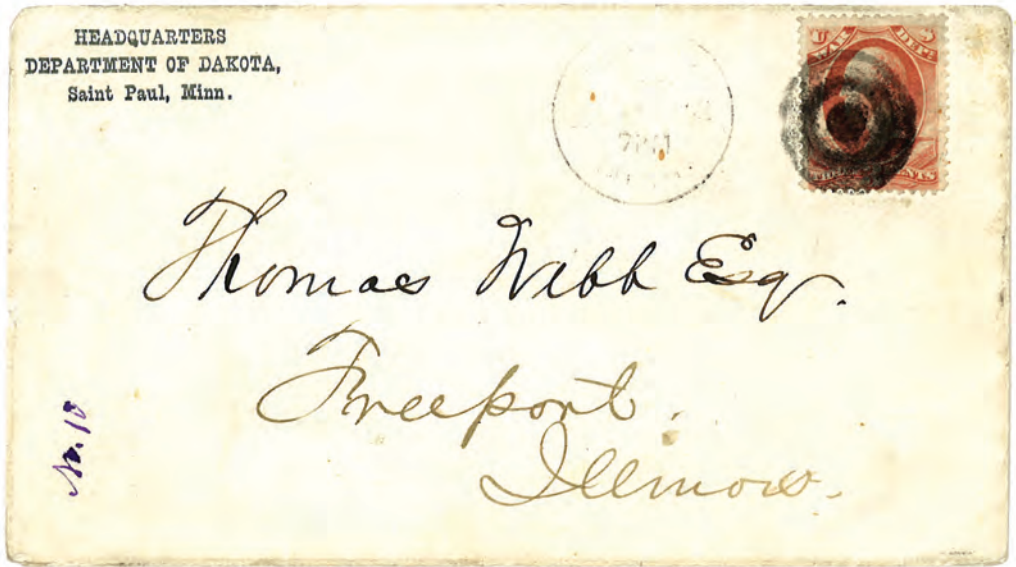 HEADQUARTERS
DEPARTMENT OF DAKOTA,
Saint Paul, Minn.
U S
WAR DEPT
CENTS
7 PM
Thomas Webb Esq.
Freeport.
Illinois.
No. 10